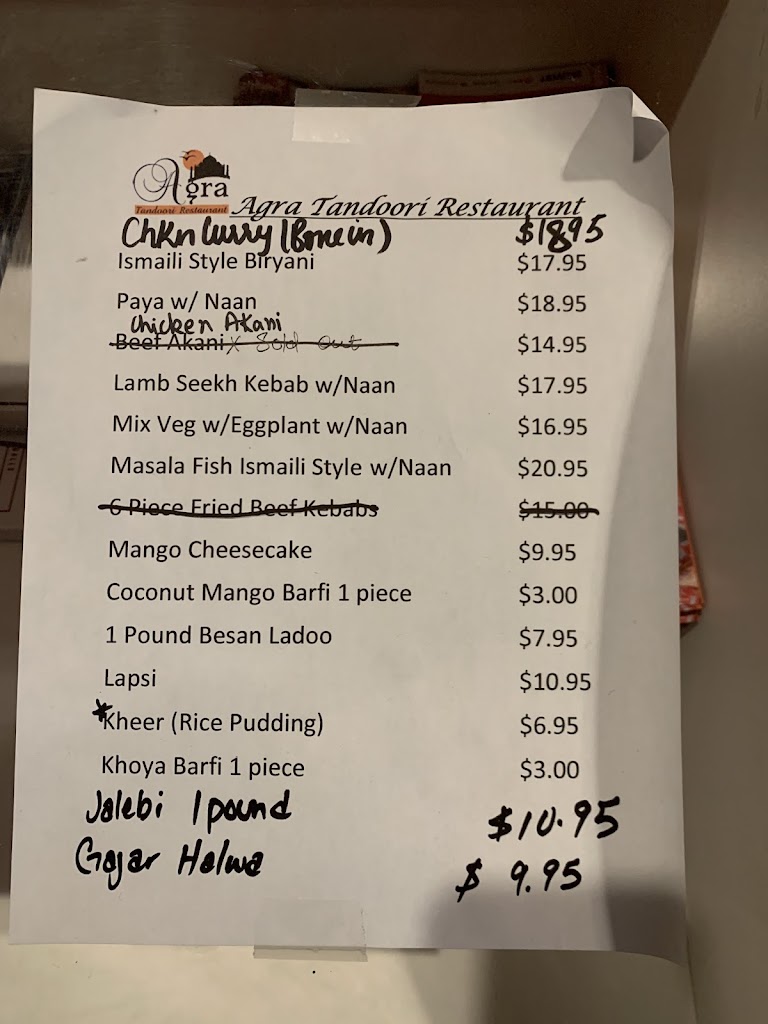 Agra
Tandoori Restaurant
Agra Tandoori Restaurant
Chkn Curry (Bone in) $18.95
Ismaili Style Biryani $17.95
Paya w/ Naan $18.95
Chicken Akani
Beef Akani x Sold out $14.95
Lamb Seekh Kebab w/Naan $17.95
Mix Veg w/Eggplant w/Naan $16.95
Masala Fish Ismaili Style w/Naan $20.95
6 Piece Fried Beef Kebabs $15.00
Mango Cheesecake $9.95
Coconut Mango Barfi 1 piece $3.00
1 Pound Besan Ladoo $7.95
Lapsi $10.95
*Kheer (Rice Pudding) $6.95
Khoya Barfi 1 piece $3.00
Jalebi 1 pound $10.95
Gajar Halwa $ 9.95